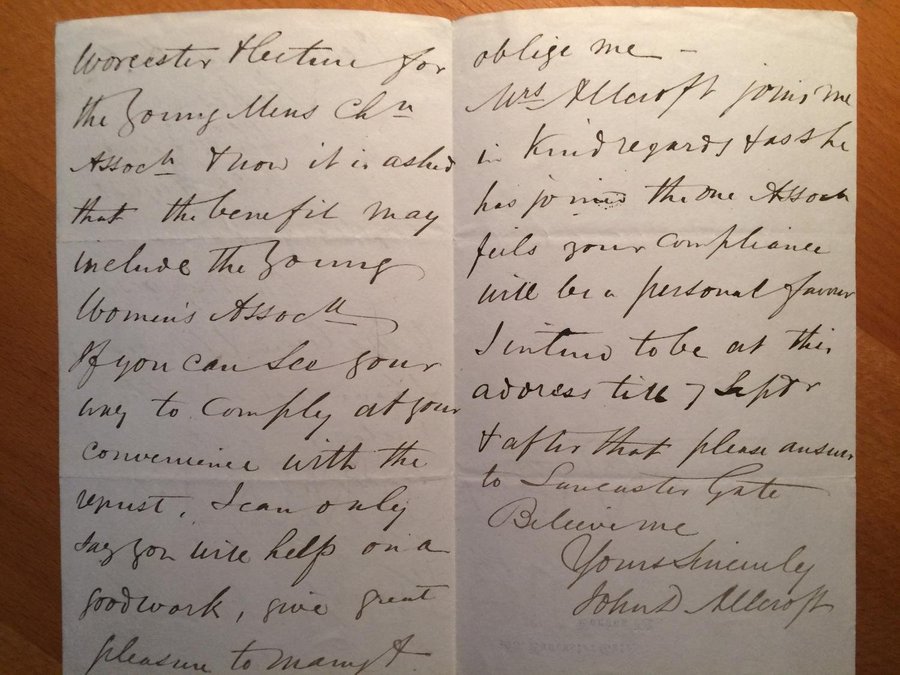 Worcester & lecture for
the Young Mens Chn
Assocn & now it is asked
that the benefit may
include the Young
Women's Assocn
If you can see your
way to comply at your
convenience with the
request, I can only
say you will help on a
good work, give great
pleasure to many &
oblige me –
Mrs Allcroft joins me
in kind regards & as she
has joined the one Assocn
feels your compliance
will be a personal favour
I intend to be at this
address till 7 Septr
& after that please answer
to Lancaster Gate
Believe me
Yours Sincerely
John D Allcroft